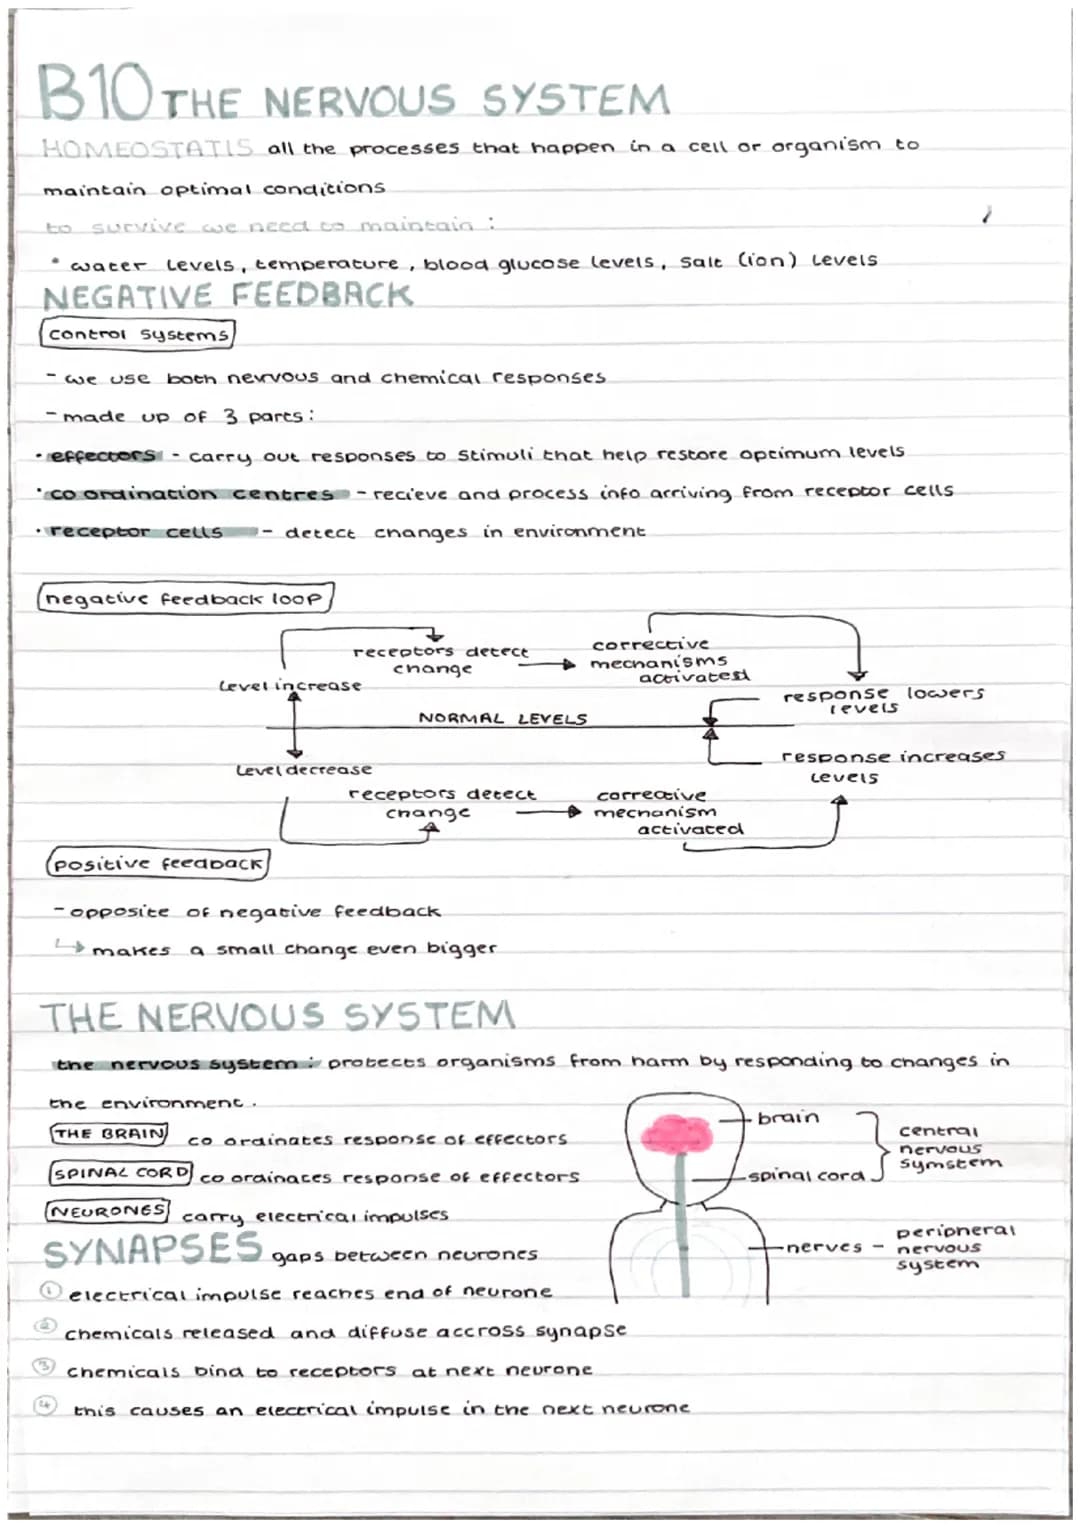 B10 THE NERVOUS SYSTEM
HOMEOSTATIS all the processes that happen in a cell or organism to
maintain optimal conditions
to survive we need to maintain :
• water levels, temperature, blood glucose levels, salt (ion) levels
NEGATIVE FEEDBACK
control systems
- we use both nervous and chemical responses
- made up of 3 parts:
• effectors - carry out responses to stimuli that help restore optimum levels
• co ordination centres - recieve and process info arriving from receptor cells
• receptor cells - detect changes in environment
negative feedback loop
level increase
receptors detect
change
corrective
mechanisms
activated
response lowers
levels
NORMAL LEVELS
level decrease
receptors detect
change
corrective
mechanism
activated
response increases
levels
positive feedback
- opposite of negative feedback
↳ makes a small change even bigger
THE NERVOUS SYSTEM
the nervous system : protects organisms from harm by responding to changes in
the environment.
THE BRAIN co ordinates response of effectors
SPINAL CORD co ordinates response of effectors
NEURONES carry electrical impulses
brain
spinal cord
central
nervous
symstem
nerves - peripheral
nervous
system
SYNAPSES gaps between neurones
① electrical impulse reaches end of neurone
② chemicals released and diffuse accross synapse
③ chemicals bind to receptors at next neurone
④ this causes an electrical impulse in the next neurone